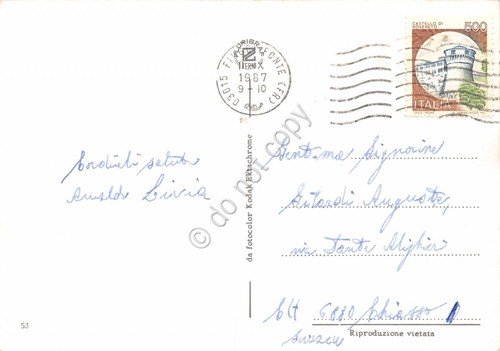 CASTELLO DI ROVERETO
500
ITALIA
03015 FIUGGI FONTE (FR)
1987
9-10
Cordiali saluti
Livia
da fotocolor Kodak Ektachrome
do not copy
Gent.ma Signorine
Auguste,
via Dante Alighieri
6830 Chiasso
Svizzera
53
Riproduzione vietata